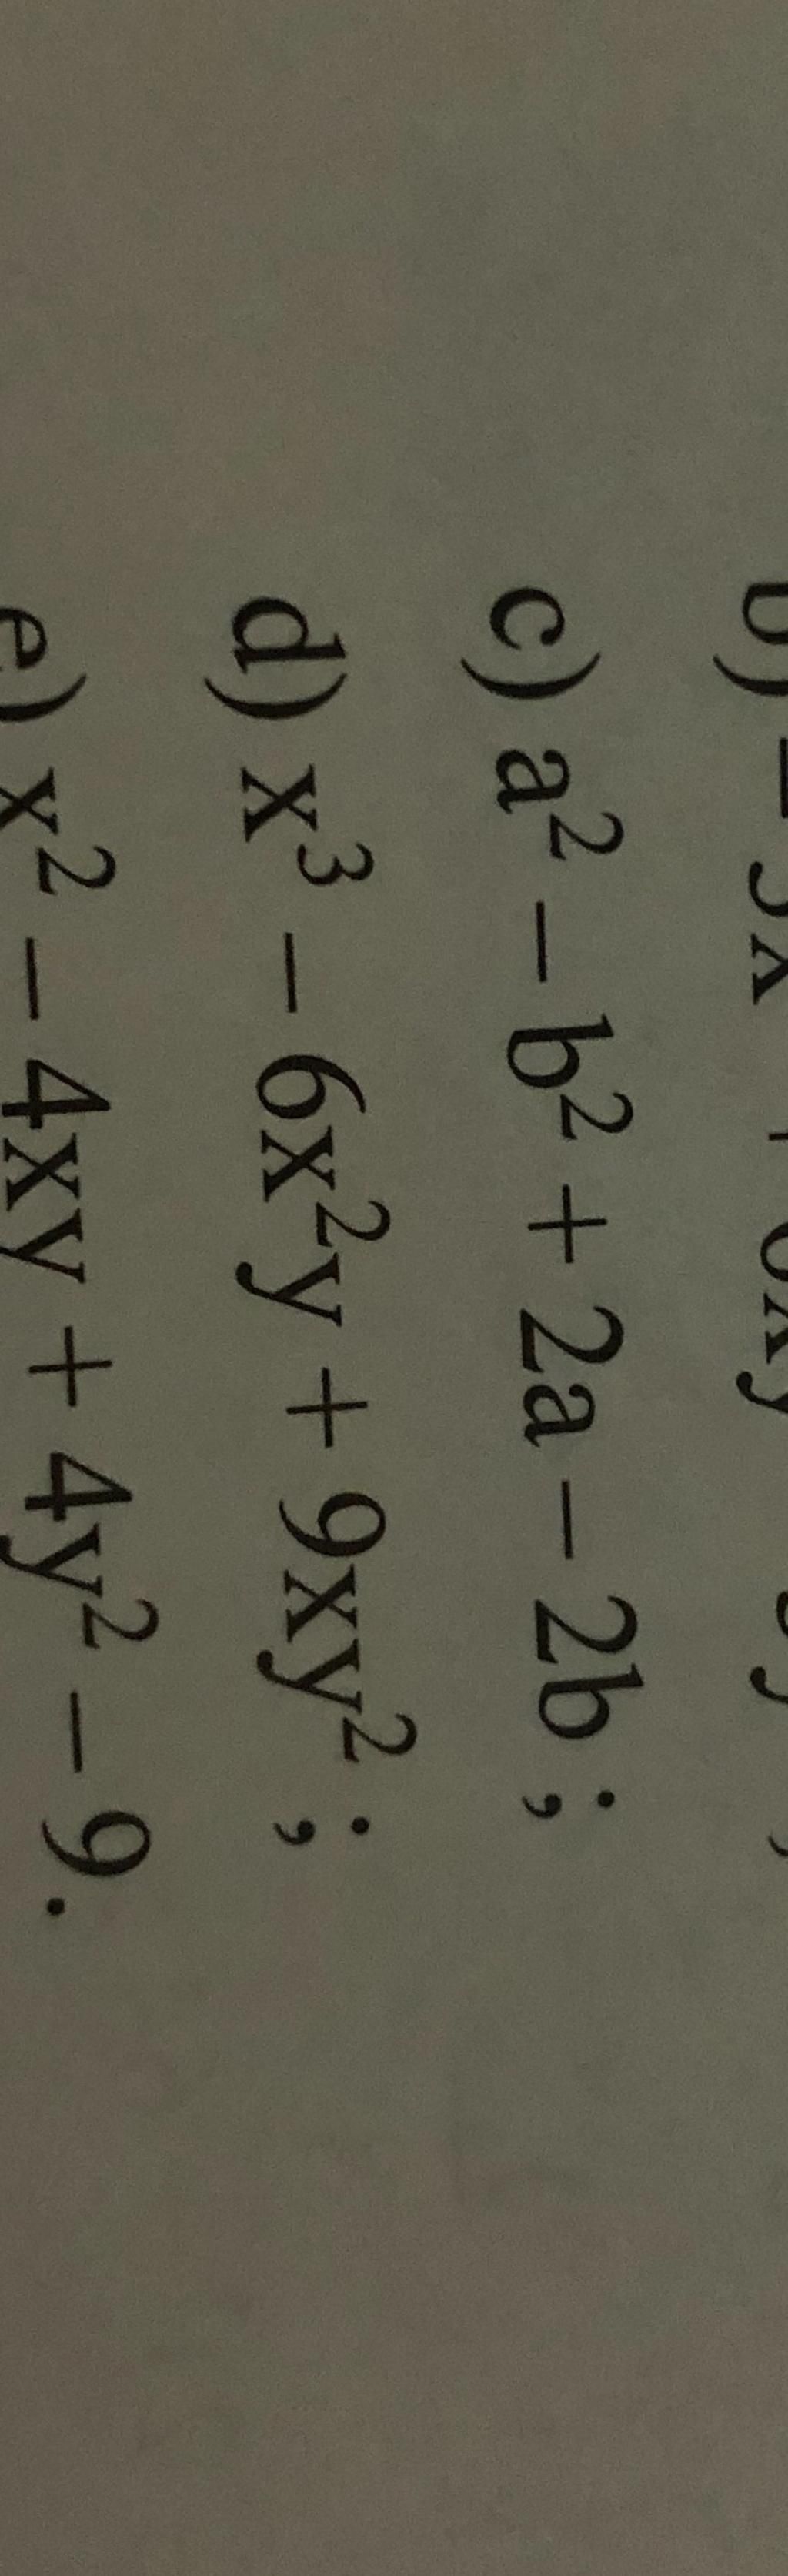 c) a² – b² + 2a – 2b ;
d) x³ – 6x²y + 9xy² ;
e) x² – 4xy + 4y² – 9.